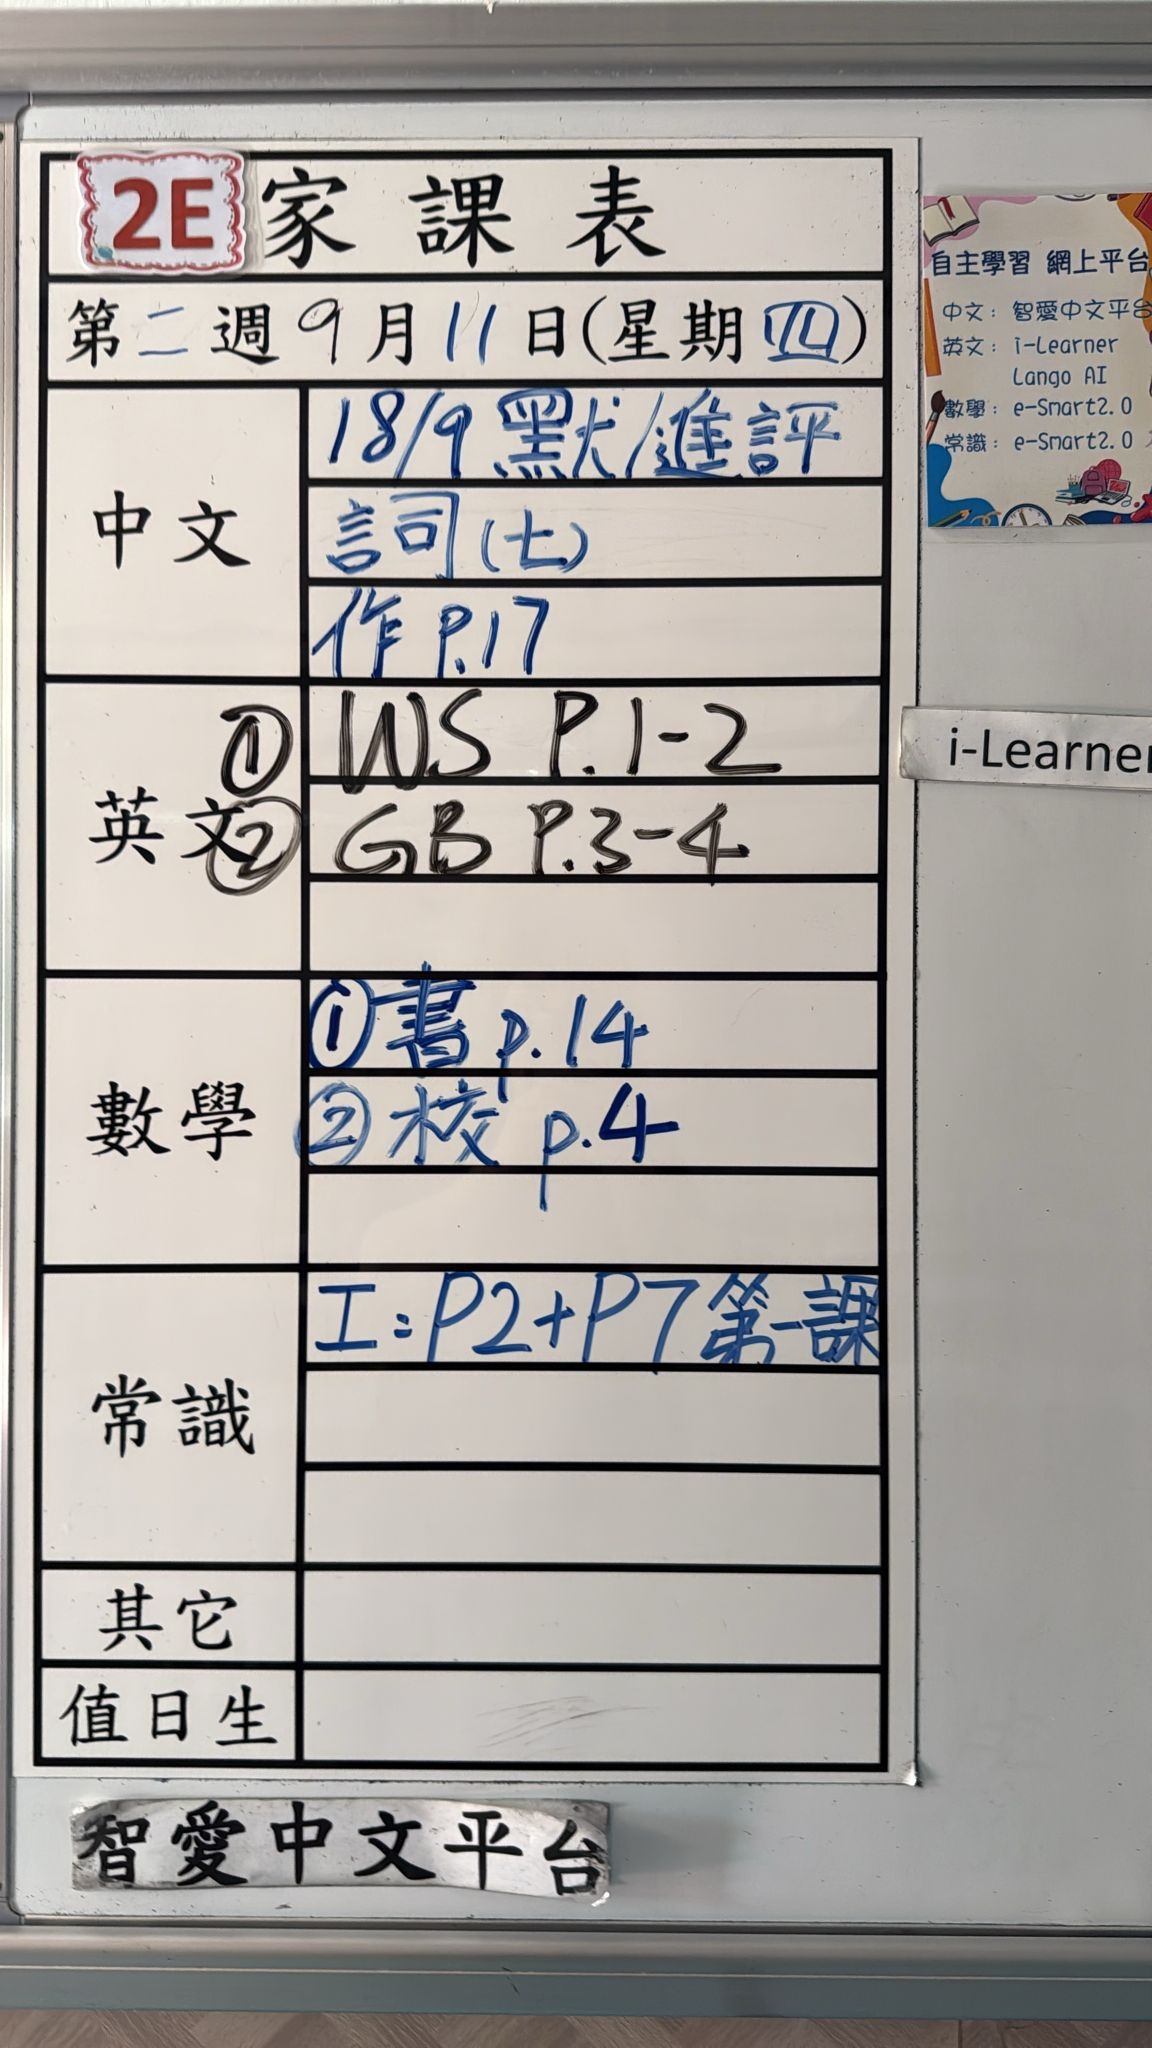 2E 家課表
第二週9月11日(星期四)
中文
18/9 默/進評
詞(七)
作 P.17
英文
① WS P.1-2
② GB P.3-4
數學
① 書 p.14
② 校 p.4
常識
工:P2+P7第一課
其它
值日生
智愛中文平台
自主學習 網上平台
中文: 智愛中文平台
英文: i-Learner
Lango AI
數學: e-Smart2.0
常識: e-Smart2.0
i-Learner